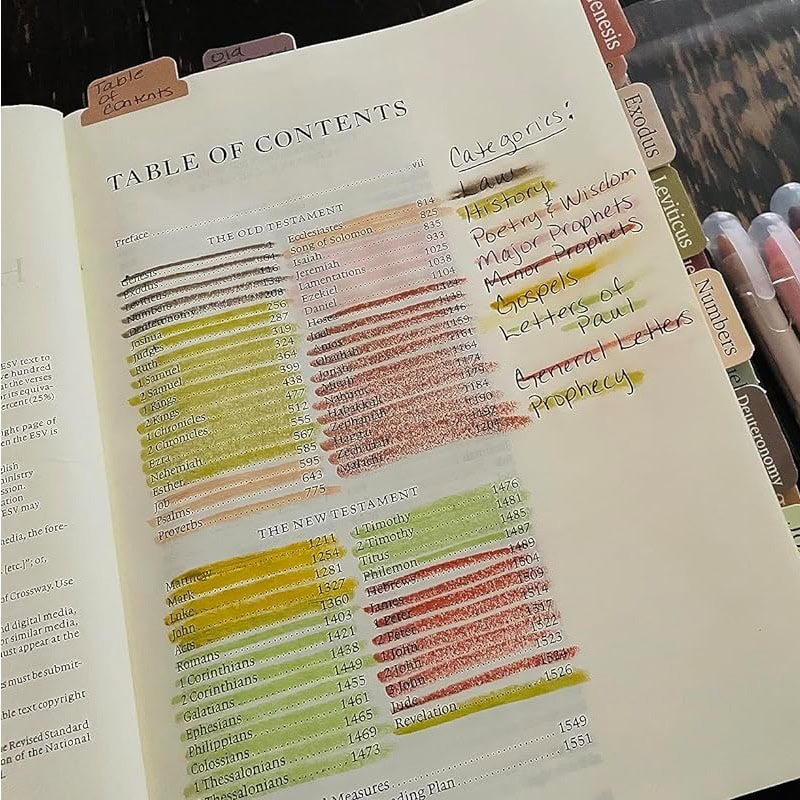 Table
of
Contents
Old
TABLE OF CONTENTS
Preface vii
THE OLD TESTAMENT
Genesis 1
Exodus
Leviticus 116
Numbers
Deuteronomy 208
Joshua 256
Judges 287
Ruth 319
1 Samuel 324
2 Samuel 364
1 Kings 399
2 Kings 438
1 Chronicles 477
2 Chronicles 512
Ezra 555
Nehemiah 567
Esther 585
Job 595
Psalms 643
Proverbs 775
Ecclesiastes 814
Song of Solomon 825
Isaiah 835
Jeremiah 933
Lamentations 1025
Ezekiel 1038
Daniel 1104
Hosea
Joel 1139
Amos 1146
Obadiah
Jonah 1161
Micah 1164
Nahum
Habakkuk
Zephaniah 1184
Haggai 1190
Zechariah
Malachi
THE NEW TESTAMENT
Matthew 1211
Mark 1254
Luke 1281
John 1327
Acts 1360
Romans 1403
1 Corinthians 1421
2 Corinthians 1438
Galatians 1449
Ephesians 1455
Philippians 1461
Colossians 1465
1 Thessalonians 1469
Thessalonians 1473
1 Timothy 1476
2 Timothy 1481
Titus 1485
Philemon 1487
Hebrews 1489
James 1504
1 Peter 1509
2 Peter 1514
1 John 1517
2 John 1522
3 John 1523
Jude 1524
Revelation 1526
Measures 1549
ding Plan 1551
Categories:
Law
History
Poetry & Wisdom
Major Prophets
Minor Prophets
Gospels
Letters of
Paul
General Letters
Prophecy
Genesis
Exodus
Leviticus
Numbers
Deuteronomy
ESV text to
hundred
at the verses
or its equiva-
ercent (25%)
ight page of
en the ESV is
glish
ministry
ssion.
ation
ESV may
media, the fore-
[etc.]"; or,
of Crossway. Use
nd digital media,
or similar media,
ust appear at the
s must be submit-
ble text copyright
e Revised Standard
on of the National